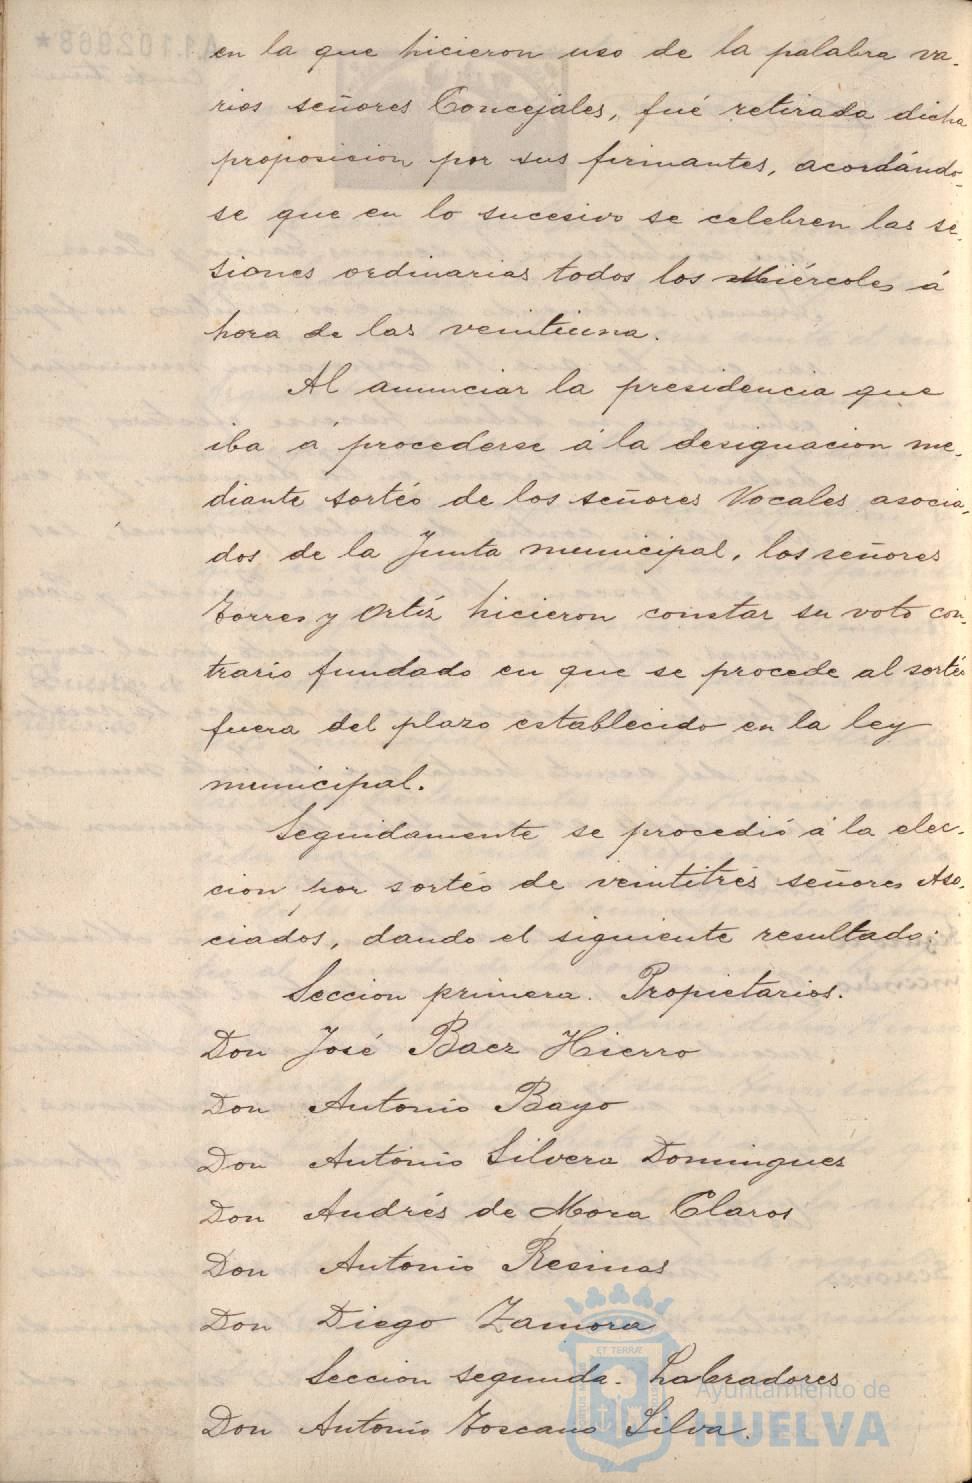 en la que hicieron uso de la palabra va-
rios señores Concejales, fué retirada dicha
proposision por sus firmantes, acordándo-
se que en lo sucesivo se celebren las se-
siones ordinarias todos los Miércoles á
hora de las veintiuna.
Al anunciar la presidencia que
iba á procederse á la designacion me-
diante sortéo de los señores Vocales asocia-
dos de la Junta municipal, los señores
Torres y Ortíz hicieron constar su voto con-
trario fundado en que se procede al sortéo
fuera del plazo establecido en la ley
municipal.
Seguidamente se procedió á la elec-
cion por sortéo de veintitrés señores Aso-
ciados, dando el siguiente resultado:
Seccion primera. Propietarios.
Don José Baez Hierro
Don Antonio Bayo
Don Antonio Silvera Domingues
Don Andrés de Mora Claros
Don Antonio Resinas
Don Diego Zamora
Seccion segunda. Labradores
Don Antonio Toscano Silva.
ET TERRÆ
Ayuntamiento de
HUELVA